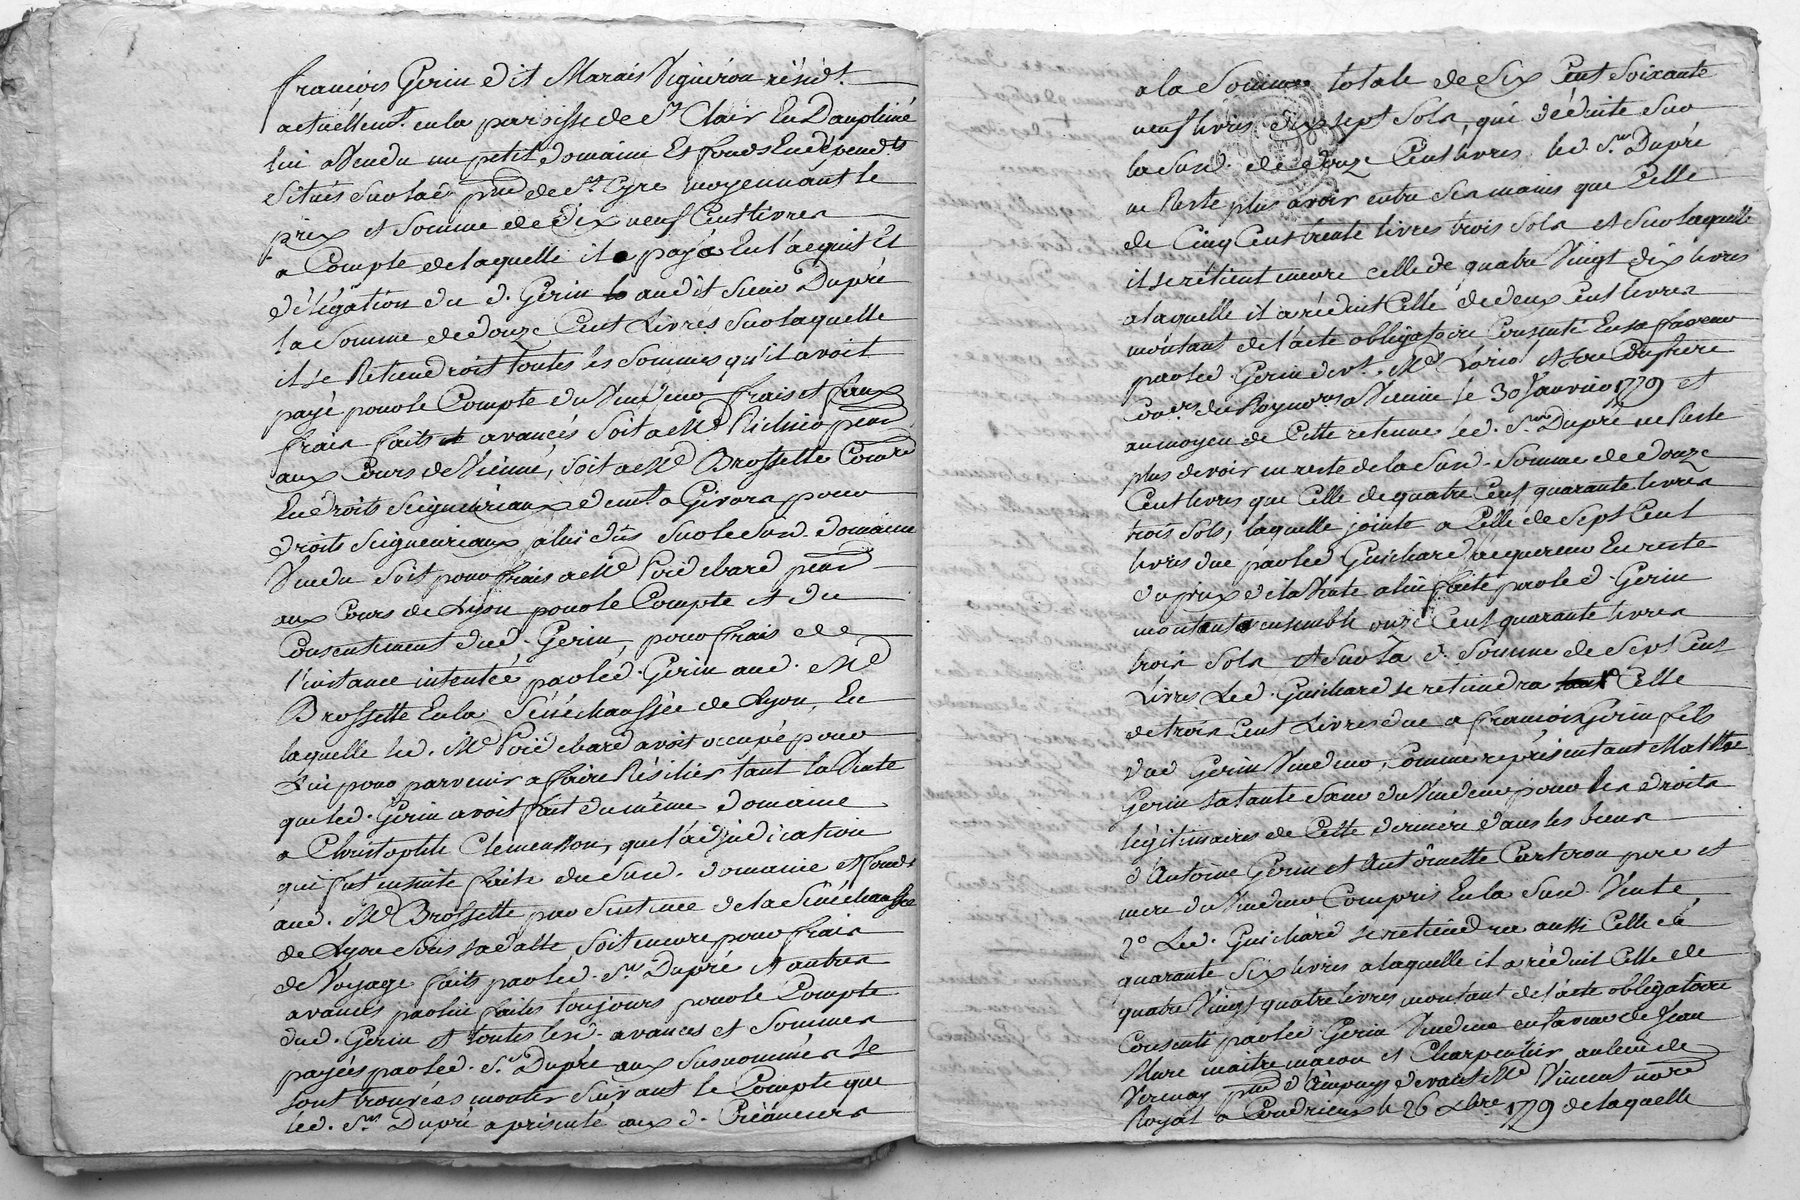 françois Gerin dit Marais Vigneron résidt.
actuellemt. en la paroisse de St Clair En Dauphiné
lui a Vendu un petit domaine Et fonds En dépendts
Situés Sur la d. psse de St. Cyre moyennant le
prix et Somme de dix neuf Cent livres
a Compte de laquelle il a payé En l'acquit Et
délégation du d. Gerin audit Sieur Dupré
la Somme de douze Cent Livres Sur laquelle
il se Retiendroit toutes les Sommes qu'il avoit
payé pour le Compte du Vendeur frais et faux
frais faits et avancés Soit a Me Richier
aux Cours de Vienne, Soit a Me Brossette
En droits Seigneuriaux demt. a Givors pour
droits Seigneuriaux a lui dûs Sur le Susd. domaine
Vendu Soit pour frais a Me
aux Cours de Lyon pour le Compte et du
Consentement dud. Gerin, pour frais de
l'instance intentée par led. Gerin aud. Me
Brossette En la Sénéchaussée de Lyon, En
laquelle led. Me avoit occupé pour
Lui pour parvenir a faire Résilier tant la Vente
que led. Gerin avoit fait du même domaine
a Christophle Clemensson, que l'adjudication
qui fut ensuite faite du Susd. domaine et fonds
aud. Me Brossette par Sentence de la Sénéchaussée
de Lyon Sous sa datte Soit encore pour frais
de Voyage faits par led. Sr. Dupré et autres
avances par lui faites toujours pour le Compte
dud. Gerin et toutes lesd. avances et Sommes
payées par led. Sr. Dupré aux susnommés se
sont trouvées monter Suivant le Compte que
led. Sr. Dupré a présenté aux d. Créanciers
a la Somme totale de Six Cent Soixante
neuf livres dix sept Sols, qui déduite Sur
la Susd. de douze Cent livres led. Sr. Dupré
ne Reste plus avoir entre Ses mains que Celle
de Cinq Cent trente livres trois Sols et Sur laquelle
il se rétient encore celle de quatre Vingt dix livres
a laquelle il a réduit Celle de deux Cent livres
montant de l'acte obligatoire Consenti En sa faveur
par led. Gerin devt. Me et son Confrere
Coners. du Roy nores a Vienne le 30 Janvier 1779 et
au moyen de Cette retenue led. Sr. Dupré ne Reste
plus devoir en reste de la Susd. Somme de douze
Cent livres que Celle de quatre Cent quarante livres
trois Sols, laquelle jointe a Celle de Sept Cent
livres due par led. Guichard acquereur En reste
du prix de la Vente a lui faite par led. Gerin
montent ensemble onze Cent quarante livres
trois Sols et Sur la d. Somme de Sept Cent
Livres Led. Guichard se retiendra Celle
de trois Cent Livres due a françois Gerin fils
dud Gerin Vendeur, Comme représentant
Gerin sa tante Sœur du Vendeur pour les droits
légitimaires de Cette derniere dans les biens
d'Antoine Gerin et Antoinette Carteron pere et
mere du Vendeur Compris En la Susd. Vente
2o Led. Guichard se retiendra aussi Celle de
quarante Six livres a laquelle il a réduit Celle de
quatre Vingt quatre livres montant de l'acte obligatoire
Consenti par led. Gerin Vendeur en faveur de Jean
Mure maitre maçon et Charpentier au lieu de
Vernay psse d'Ampuys devant Me Vincent nore
Royal a Condrieux le 26 Xbre 1779 de laquelle